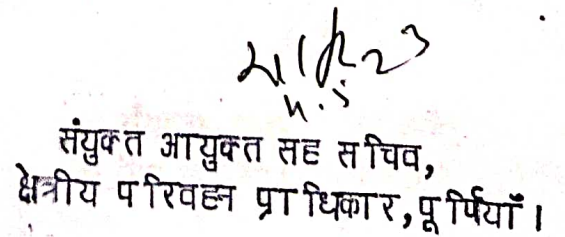 संयुक्त आयुक्त सह सचिव,
क्षेत्रीय परिवहन प्राधिकार, पूर्णियाँ।